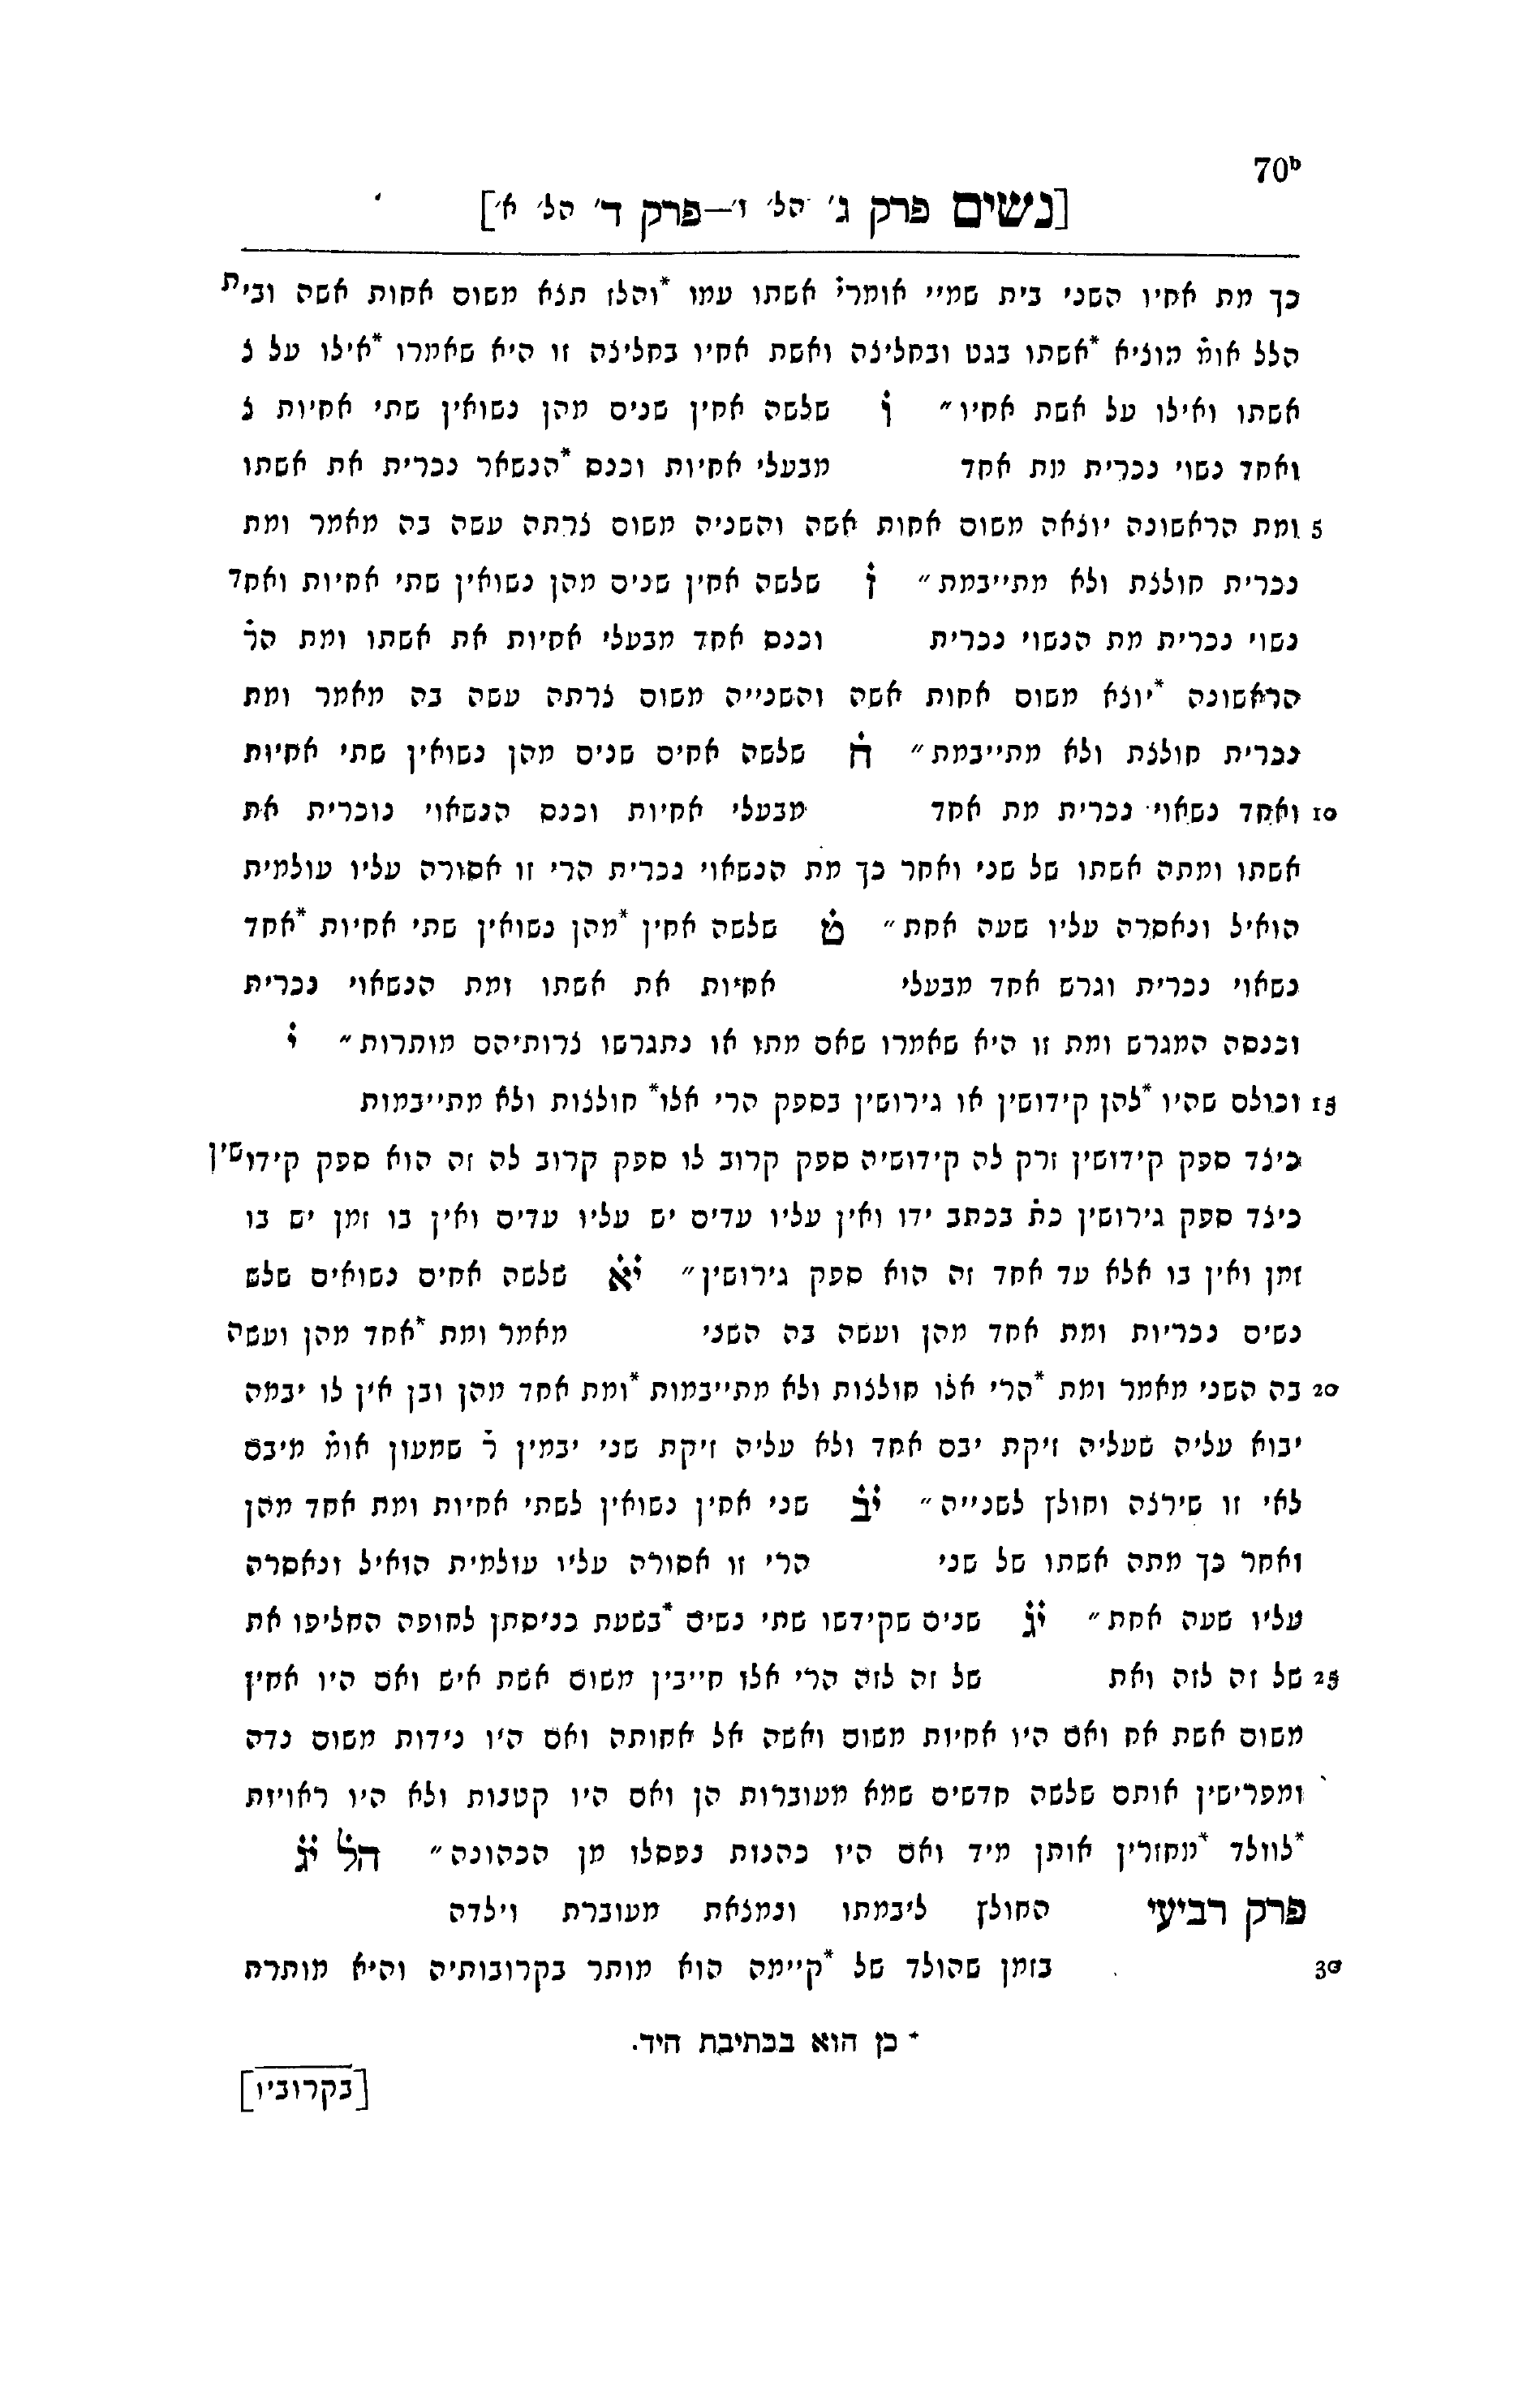 70b
[נשים פרק ג׳ הל׳ ו׳—פרק ד׳ הל׳ א׳]
כך מת אחיו השני בית שמיי אומרי̇ אשתו עמו *והלז תצא משום אחות אשה ובית
הלל אומ̇ מוציא *אשתו בגט ובחליצה ואשת אחיו בחליצה זו היא שאמרו *אילו על צ
אשתו ואילו על אשת אחיו״ ו̇ שלשה אחין שנים מהן נשואין שתי אחיות צ
ואחד נשוי נכרית מת אחד מבעלי אחיות וכנס *הנשאר נכרית את אשתו
5 ומת הראשונה יוצאה משום אחות אשה והשניה משום צרתה עשה בה מאמר ומת
נכרית חולצת ולא מתייבמת״ ז̇ שלשה אחין שנים מהן נשואין שתי אחיות ואחד
נשוי נכרית מת הנשוי נכרית וכנס אחד מבעלי אחיות את אשתו ומת הר̇
הראשונה *יוצא משום אחות אשה והשנייה משום צרתה עשה בה מאמר ומת
נכרית חולצת ולא מתייבמת״ ח̇ שלשה אחים שנים מהן נשואין שתי אחיות
10 ואחד נשאוי נכרית מת אחד מבעלי אחיות וכנס הנשאוי נוכרית את
אשתו ומתה אשתו של שני ואחר כך מת הנשאוי נכרית הרי זו אסורה עליו עולמית
הואיל ונאסרה עליו שעה אחת״ ט̇ שלשה אחין *מהן נשואין שתי אחיות *אחד
נשאוי נכרית וגרש אחד מבעלי אחיות את אשתו ומת הנשאוי נכרית
וכנסה המגרש ומת זו היא שאמרו שאם מתו או נתגרשו צרותיהם מותרות״ י̇
15 וכולם שהיו *להן קידושין או גירושין בספק הרי אלו* חולצות ולא מתייבמות
כיצד ספק קידושין זרק לה קידושיה ספק קרוב לו ספק קרוב לה זה הוא ספק קידושין
כיצד ספק גירושין כת̇ בכתב ידו ואין עליו עדים יש עליו עדים ואין בו זמן יש בו
זמן ואין בו אלא עד אחד זה הוא ספק גירושין״ י̇א̇ שלשה אחים נשואים שלש
נשים נכריות ומת אחד מהן ועשה בה השני מאמר ומת *אחד מהן ועשה
20 בה השני מאמר ומת *הרי אלו חולצות ולא מתייבמות *ומת אחד מהן ובן אין לו יבמה
יבוא עליה שעליה זיקת יבם אחד ולא עליה זיקת שני יבמין ר̇ שמעון אומ̇ מיבם
לאי זו שירצה וחולץ לשנייה״ י̇ב̇ שני אחין נשואין לשתי אחיות ומת אחד מהן
ואחר כך מתה אשתו של שני הרי זו אסורה עליו עולמית הואיל ונאסרה
עליו שעה אחת״ י̇ג̇ שנים שקידשו שתי נשים *בשעת כניסתן לחופה החליפו את
25 של זה לזה ואת של זה לזה הרי אלו חייבין משום אשת איש ואם היו אחין
משום אשת אח ואם היו אחיות משום ואשה אל אחותה ואם היו נידות משום נדה
ומפרישין אותם שלשה חדשים שמא מעוברות הן ואם היו קטנות ולא היו ראויות
*לוולד *מחזרין אותן מיד ואם היו כהנות נפסלו מן הכהונה״ הל̇ י̇ג̇
פרק רביעי החולץ ליבמתו ונמצאת מעוברת וילדה
30 בזמן שהולד של *קיימה הוא מותר בקרובותיה והיא מותרת
* כן הוא בכתיבת היד.
[בקרוביו]